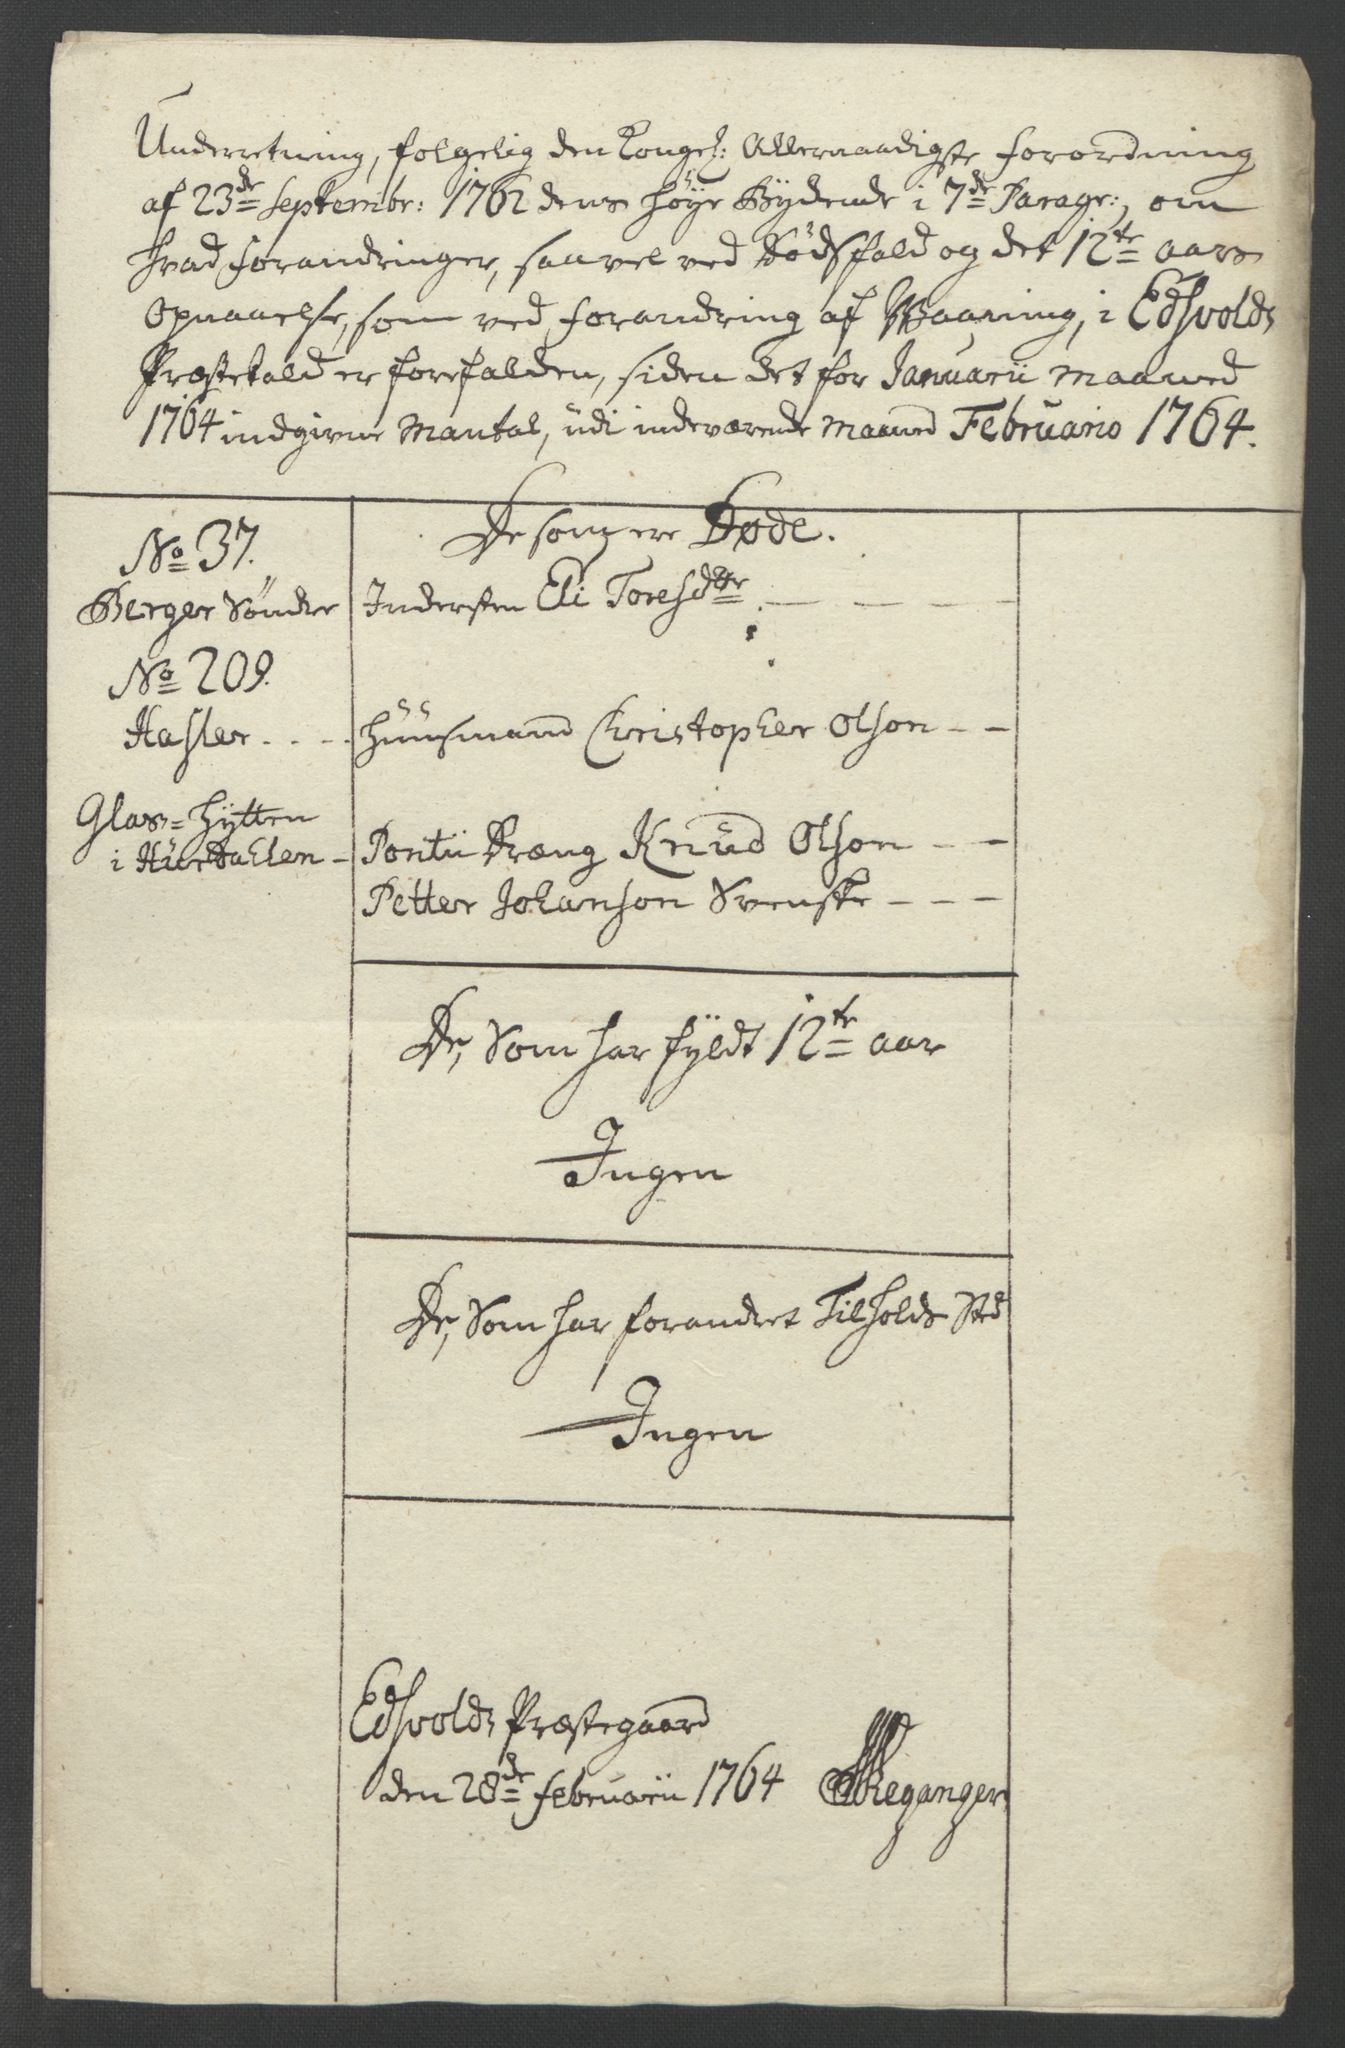 Underretning, følgelig den Kongel: Allernaadigste forordning
af 23de Septembr: 1762 dens høÿe Bÿdende i 7de Paragr:, om
hvad forandringer, saavel ved Dødsfald og det 12te aars
Opnaaelse, som ved forandring af Waaning, i Edsvolds
Præstekald er forefalden, siden det for Januarii Maaned
1764 indgivne Mantal, udi indeværende Maaned Februario 1764.
De som ere Døde.
No 37.
Berger Søndre Indersten Eli Toresdttr
No 209.
Hasler Huusmand Christopher Olson
Glas=Hÿtten
i Hurdahlen Pontii Dræng Knud Olson
Petter Johanson Svenske
De, Som har fÿldt 12te aar
Ingen
De, Som har forandret Tilholds Sted
Ingen
Edsvolds Præstegaard
den 28de februarii 1764